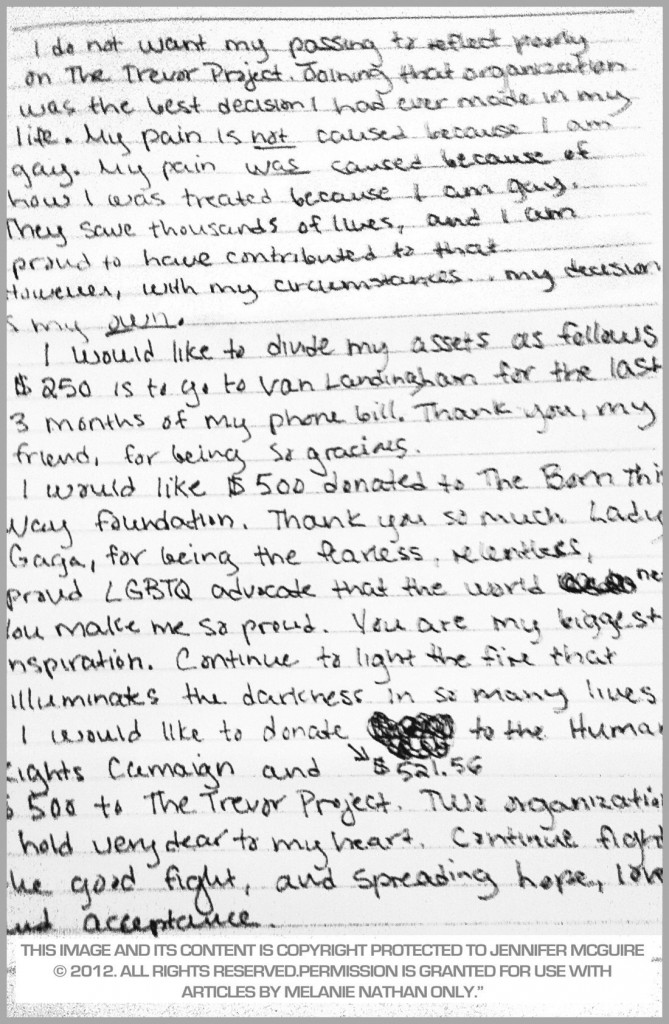 I do not want my passing to reflect poorly
on The Trevor Project. Joining that organization
was the best decision I had ever made in my
life. My pain is not caused because I am
gay. My pain was caused because of
how I was treated because I am gay.
They save thousands of lives, and I am
proud to have contributed to that
However, with my circumstances... my decision
s my own.
I would like to divide my assets as follows
$250 is to go to Van Landingham for the last
3 months of my phone bill. Thank you, my
friend, for being so gracious.
I would like $500 donated to The Born Thi
Way Foundation. Thank you so much Lady
Gaga, for being the fearless, relentless,
proud LGBTQ advocate that the world ne
You make me so proud. You are my biggest
nspiration. Continue to light the fire that
illuminates the darkness in so many lives
I would like to donate to the Human
Rights Camaign and $521.56
$500 to The Trevor Project. Two organizatio
hold very dear to my heart. Continue fight
he good fight, and spreading hope, love
and acceptance.
THIS IMAGE AND ITS CONTENT IS COPYRIGHT PROTECTED TO JENNIFER MCGUIRE
© 2012. ALL RIGHTS RESERVED.PERMISSION IS GRANTED FOR USE WITH
ARTICLES BY MELANIE NATHAN ONLY."